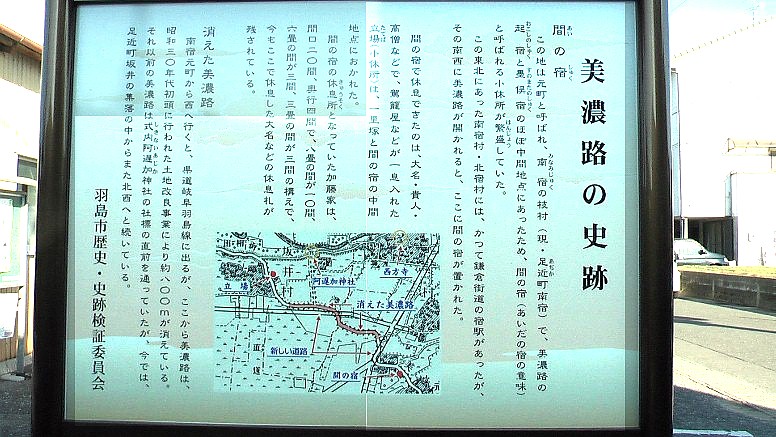 美濃路の史跡
間の宿
この地は元町と呼ばれ、南宿の枝村（現・足近町南宿）で、美濃路の
起宿と墨俣宿のほぼ中間地点にあったため、間の宿（あいだの宿の意味）
と呼ばれる小休所が繁盛していた。
この東北にあった南宿村・北宿村には、かつて鎌倉街道の宿駅があったが、
その南西に美濃路が開かれると、ここに間の宿が置かれた。
間の宿で休息できたのは、大名・貴人・
高僧などで、駕籠屋などが一息入れた
立場（小休所）は、一里塚と間の宿の中間
地点におかれた。
間の宿の休息所となっていた加藤家は、
間口二〇間、奥行四間で、八畳の間が一〇間、
六畳の間が三間、三畳の間が三間の構えで、
今もここで休息した大名などの休息札が
残されている。
消えた美濃路
南宿元町から西へ行くと、県道岐阜羽島線に出るが、ここから美濃路は、
昭和三〇年代初頭に行われた土地改良事業により約八〇〇ｍが消えている。
それ以前の美濃路は式内阿遅加神社の社標の直前を通っていたが、今では、
足近町坂井の集落の中からまた北西へと続いている。
羽島市歴史・史跡検証委員会
西方寺
阿遅加神社
立場
消えた美濃路
新しい道路
間の宿
坂
井
村